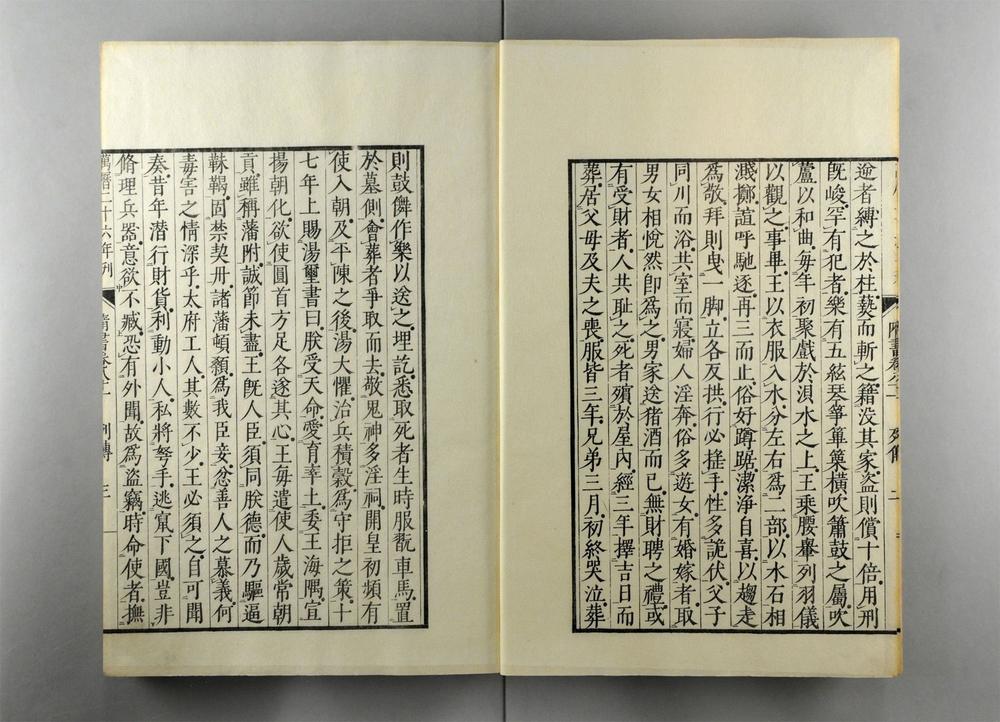 逆者縛之於柱爇而斬之籍没其家盜則償十倍用刑
旣峻罕有犯者樂有五絃琴箏篳篥橫吹簫鼓之屬吹
蘆以和曲毎年初聚戲於浿水之上王乗腰轝列羽儀
以觀之事畢王以衣服入水分左右爲二部以水石相
濺擲諠呼馳逐再三而止俗好蹲踞潔淨自喜以趨走
爲敬拜則曳一脚立各反拱行必揺手性多詭伏父子
同川而浴共室而寢婦人淫奔俗多遊女有婚嫁者取
男女相悅然卽爲之男家送猪酒而已無財聘之禮或
有受財者人共耻之死者殯於屋內經三年擇吉日而
葬居父毋及夫之喪服皆三年兄弟三月初終哭泣葬
則鼓儛作樂以送之埋訖悉取死者生時服翫車馬置
於墓側會葬者爭取而去敬鬼神多淫祠開皇初頻有
使入朝及平陳之後湯大懼治兵積穀爲守拒之策十
七年上賜湯璽書曰朕受天命愛育率土委王海隅宣
揚朝化欲使圓首方足各遂其心王毎遣使人歲常朝
貢雖稱藩附誠節未盡王旣人臣須同朕德而乃驅逼
靺鞨固禁契丹諸藩頓顙爲我臣妾忿善人之慕義何
毒害之情深乎太府工人其數不少王必須之自可聞
奏昔年潜行財貨利動小人私將弩手逃竄下國豈非
脩理兵器意欲不臧恐有外聞故爲盜竊時命使者撫
萬曆二十六年刊
隋書卷八十一 列傳 三